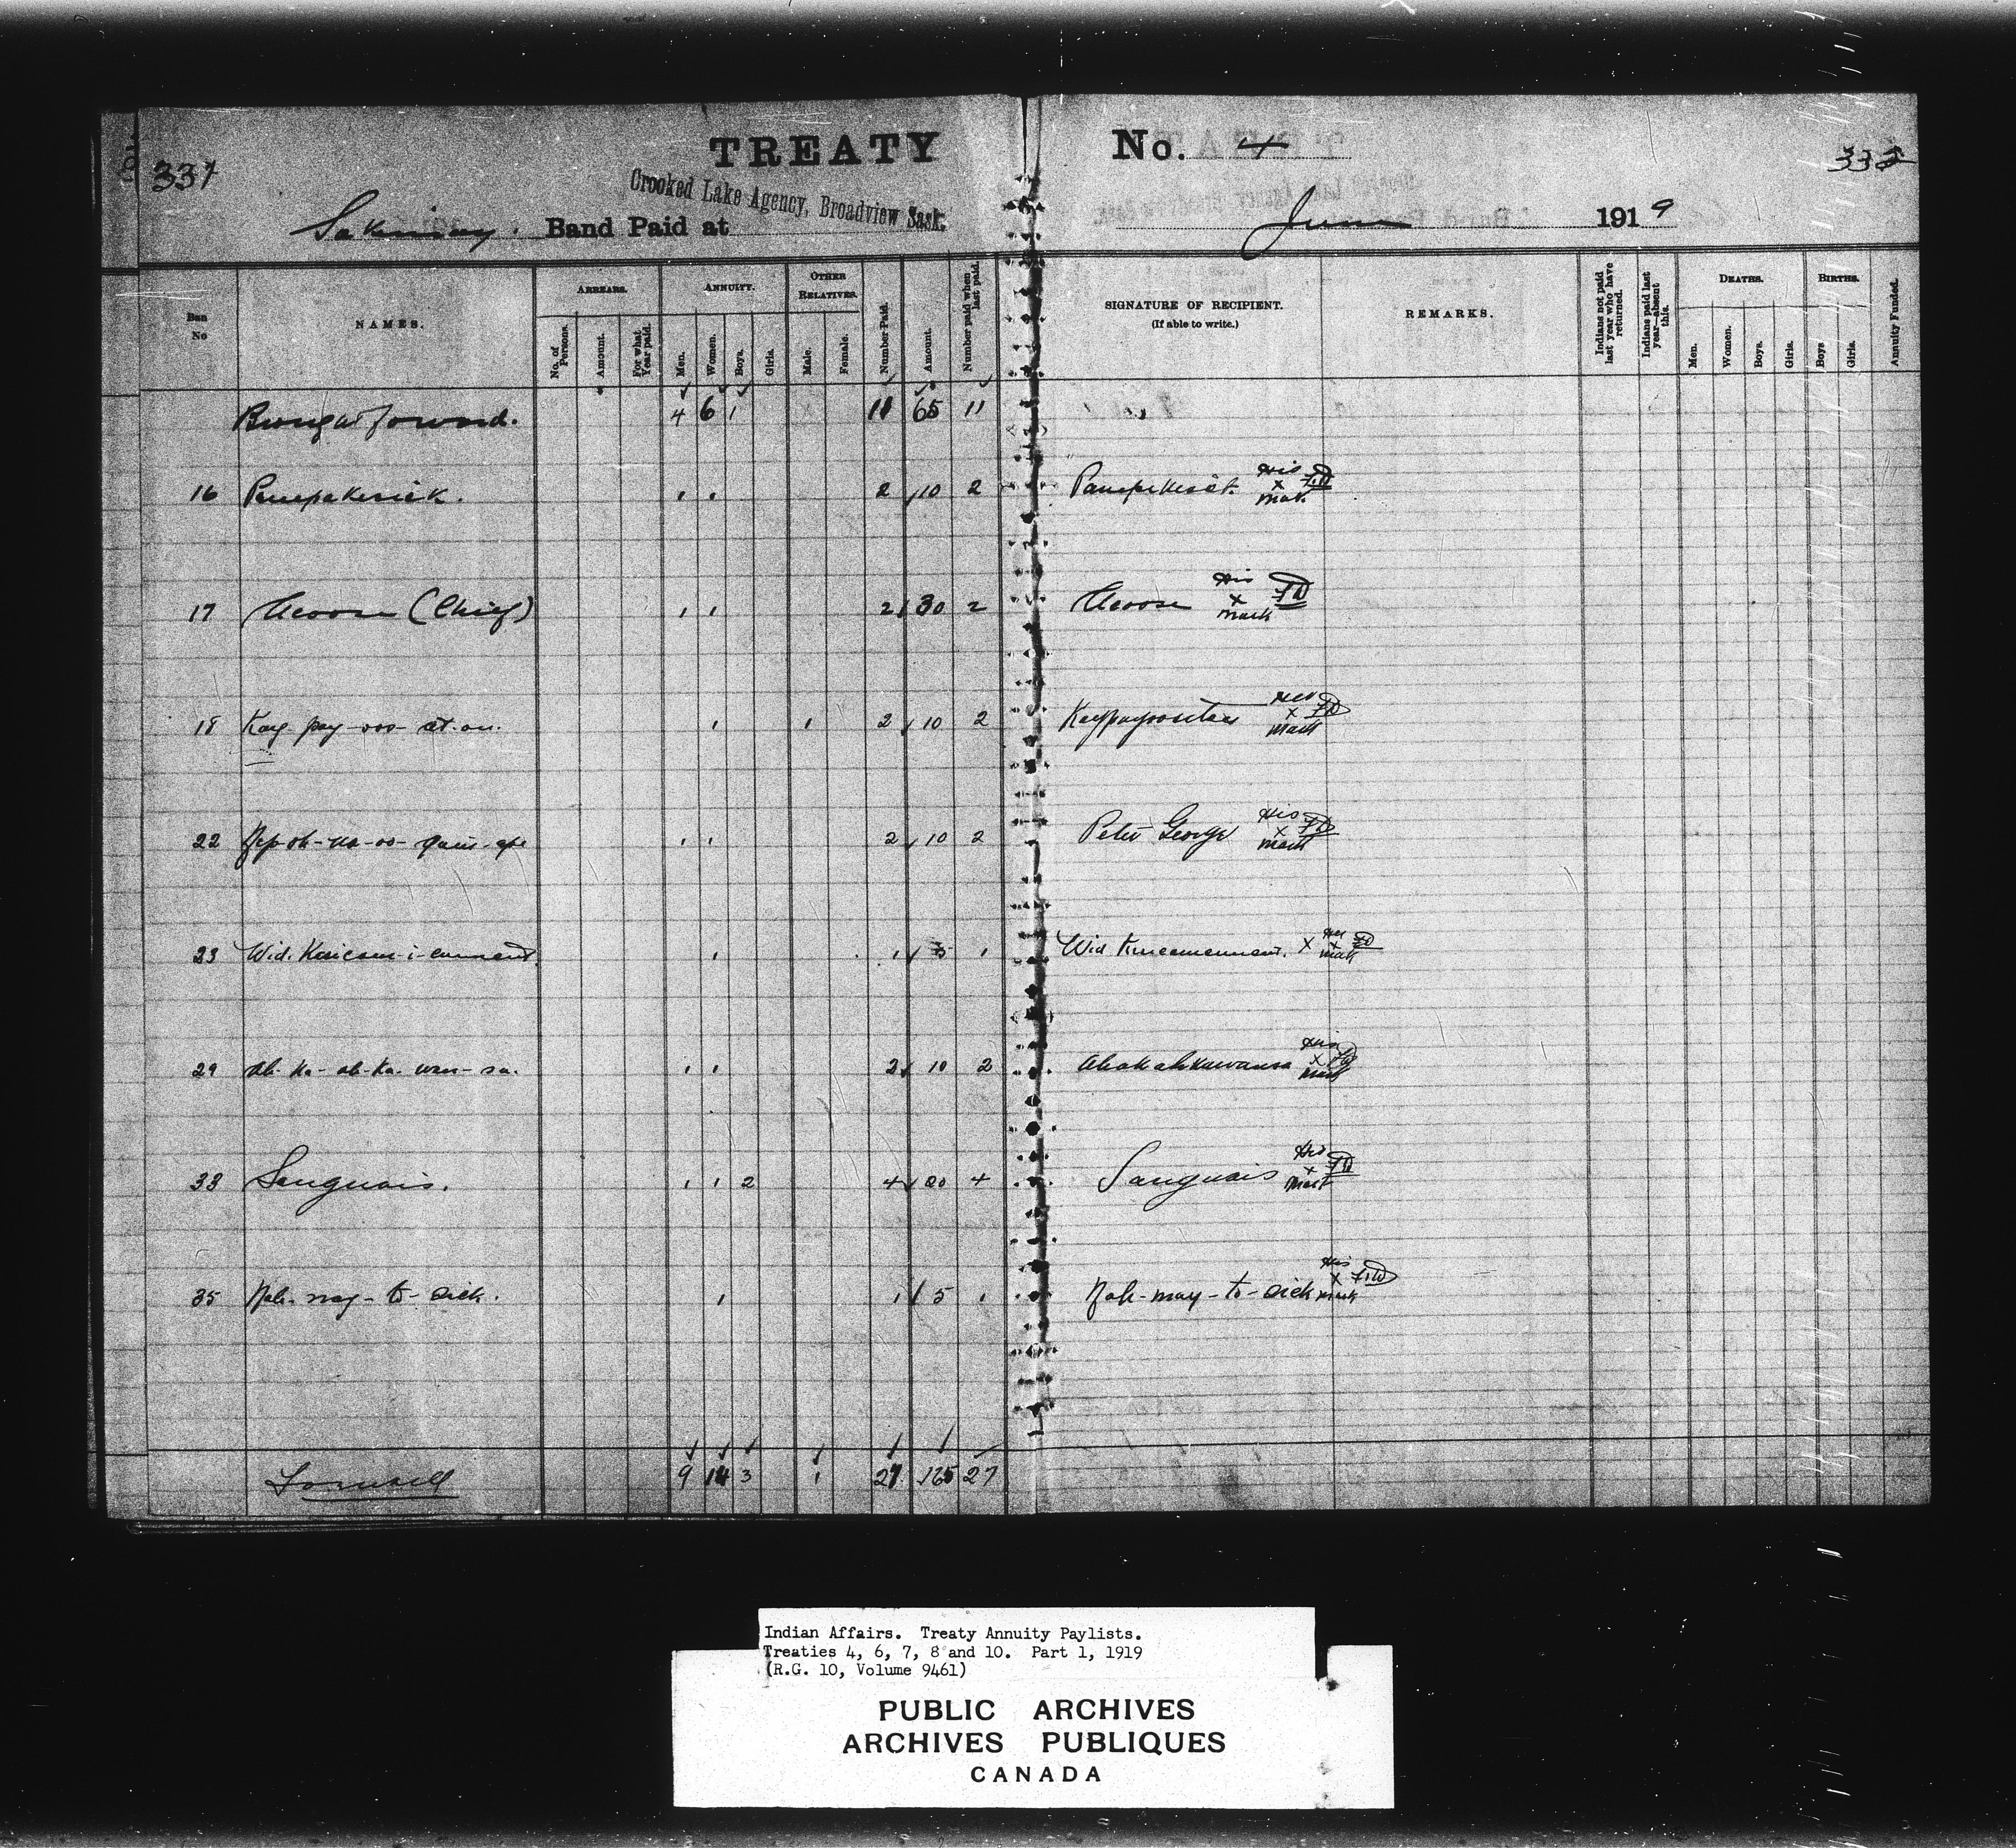 TREATY No. 4
331
332
Crooked Lake Agency, Broadview Sask.
Sakimay. Band Paid at June 1919
Ban No
NAMES.
ARREARS.
No. of Persons.
Amount.
For what Year paid.
ANNUITY.
Men.
Women.
Boys.
Girls.
OTHER RELATIVES.
Male.
Female.
Number Paid.
Amount.
Number paid when last paid.
SIGNATURE OF RECIPIENT.
(If able to write.)
REMARKS.
Indians not paid last year who have returned.
Indians paid last year—absent this.
DEATHS.
Men.
Women.
Boys.
Girls.
BIRTHS.
Boys
Girls.
Annuity Funded.
Brought forward. 4 6 1 11 65 11
16 Panapekesick. 1 1 2 10 2 His x mark
17 Acoose (Chief) 1 1 2 30 2 Acoose His x mark
18 Kay-pay-oos-at-an. 1 1 2 10 2 Her x mark
22 1 1 2 10 2 Peter George His x mark
23 Wid. 1 1 5 1 Wid x Her x mark
29 Ah-ka-ah-ka-wan-sa. 1 1 2 10 2 Ahakahkawansa His x mark
33 Sanguais. 1 1 2 4 20 4 Sanguais His x mark
35 Nah-may-to-sick. 1 1 5 1 Nah-may-to-sick His x mark
Forward 9 14 3 1 27 165 27
Indian Affairs. Treaty Annuity Paylists.
Treaties 4, 6, 7, 8 and 10. Part 1, 1919
(R.G. 10, Volume 9461)
PUBLIC ARCHIVES
ARCHIVES PUBLIQUES
CANADA